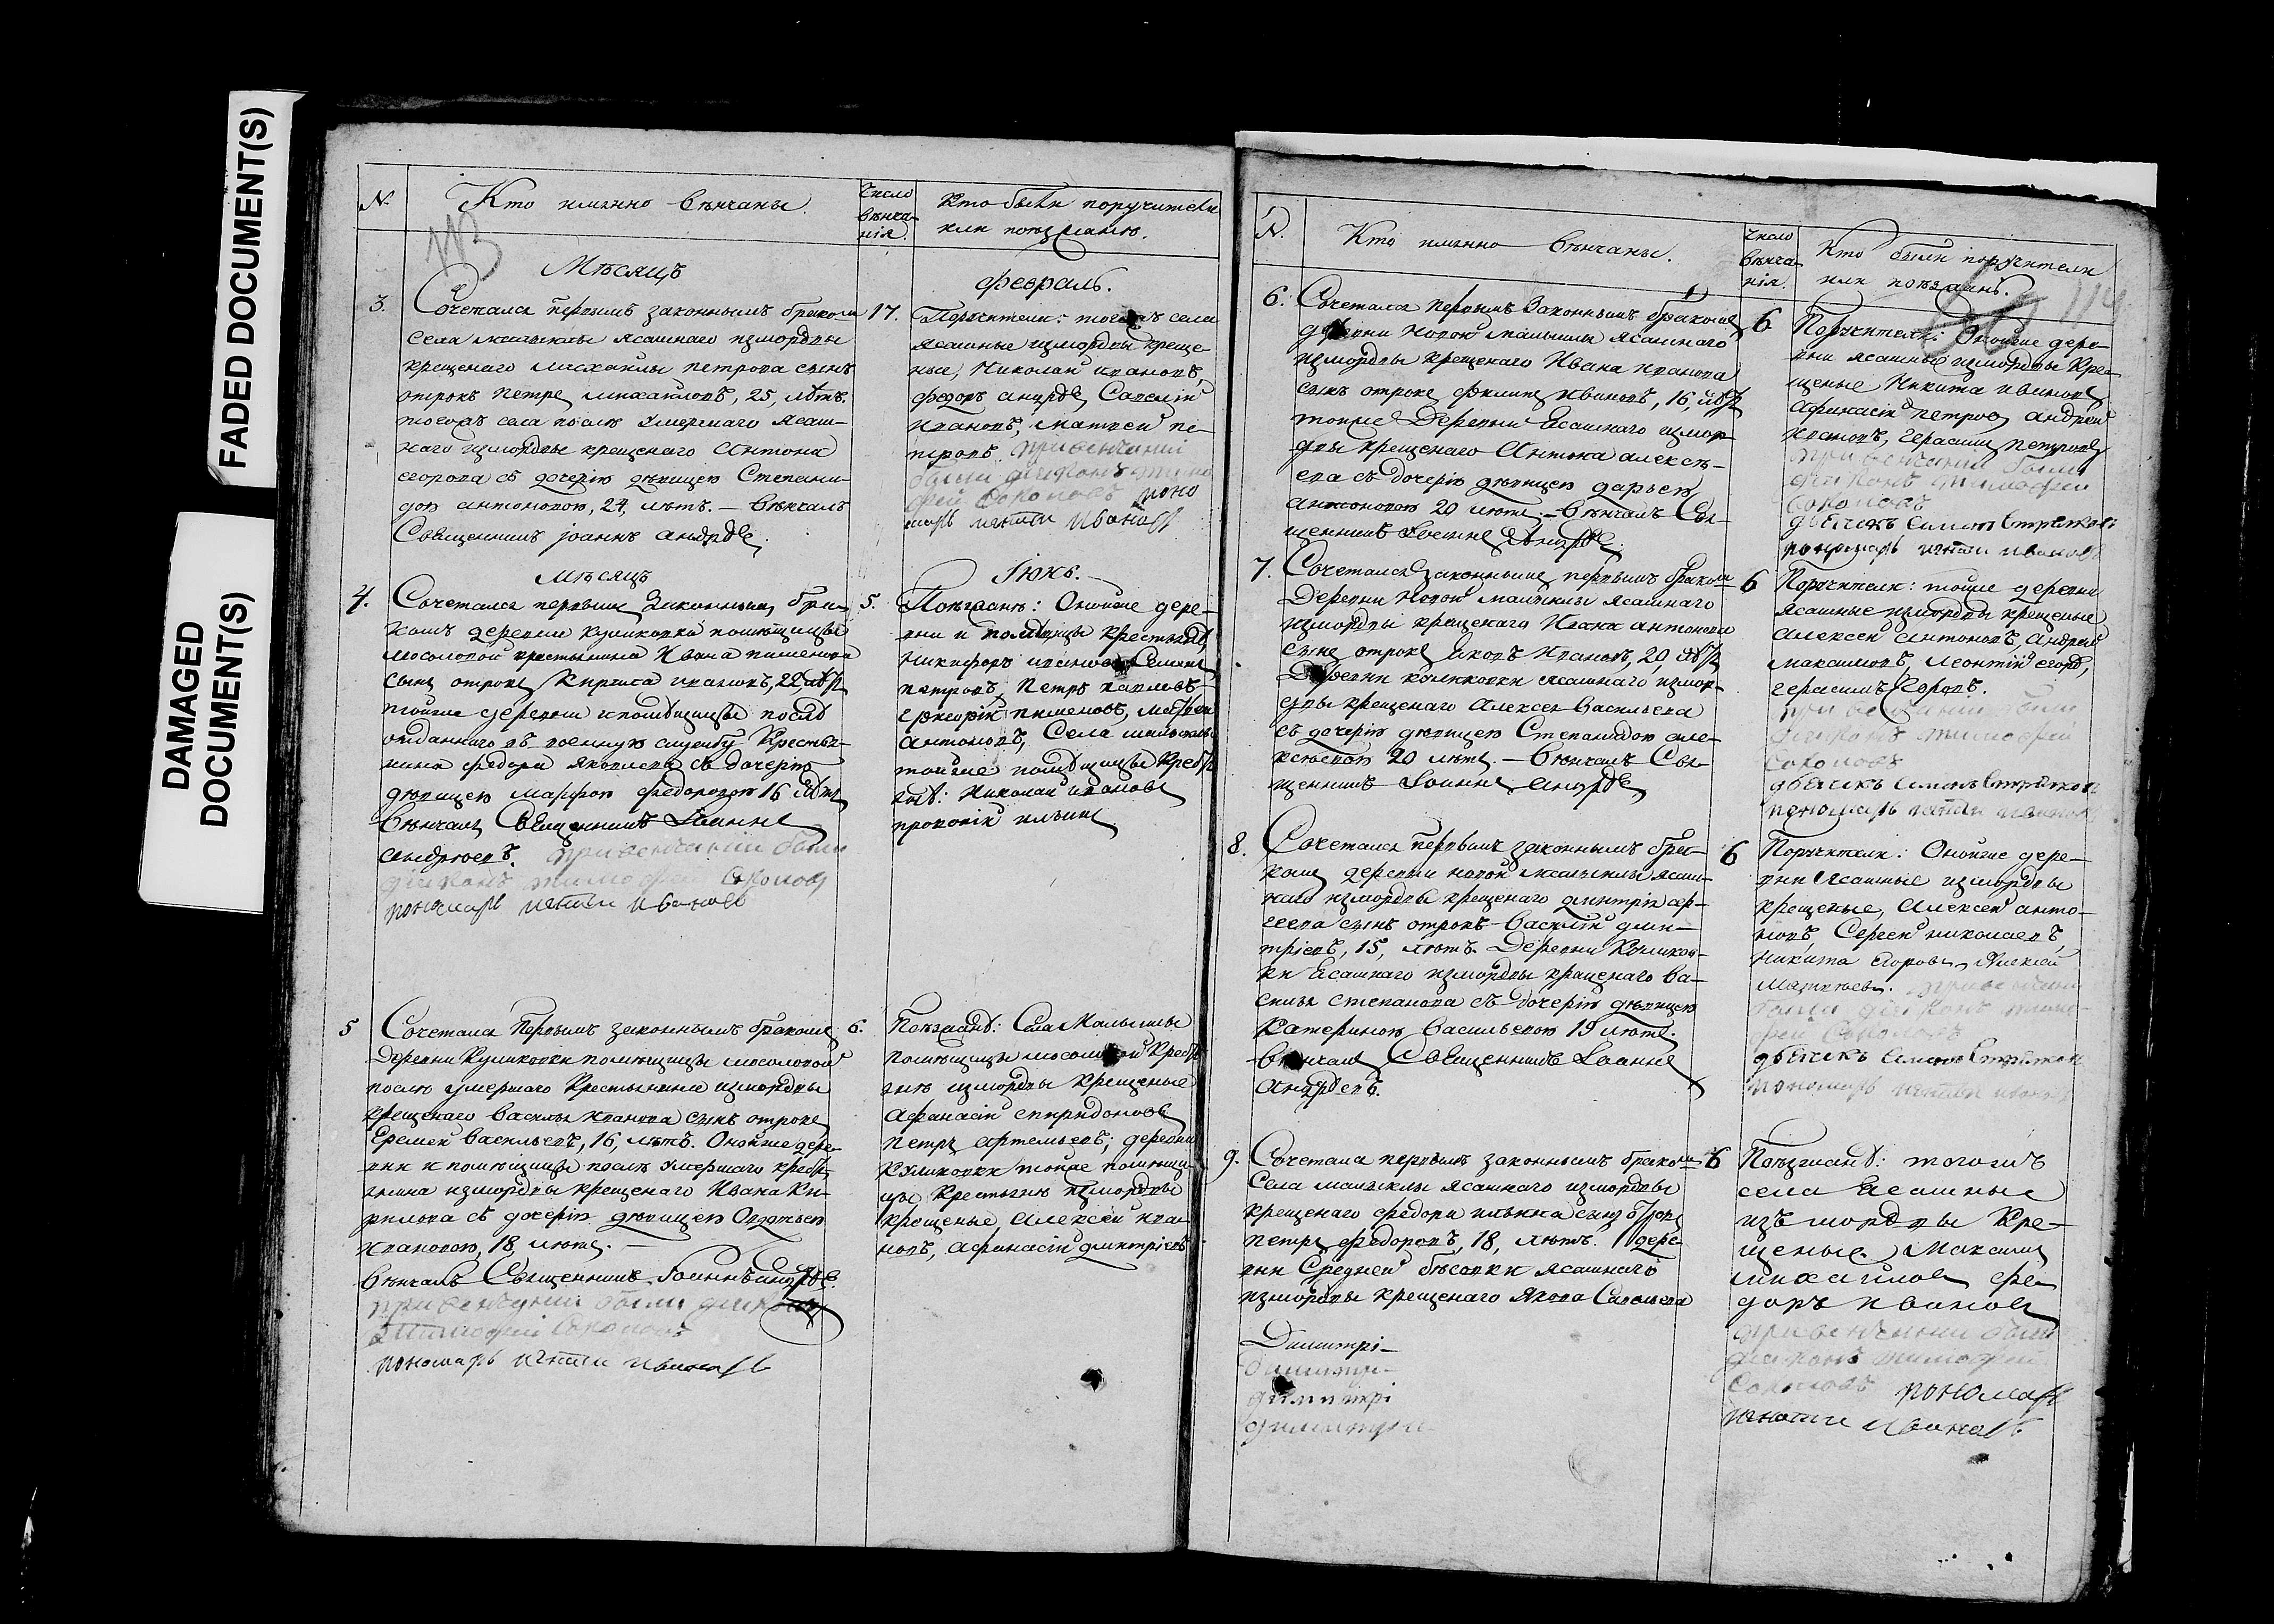 FADED DOCUMENT(S)
DAMAGED
DOCUMENT(S)
№
Кто именно вѣнчаны.
Число
вѣнча-
нія.
Кто были поручители
или поѣзжанѣ.
113
Мѣсяцъ
февраль.
3.
Сочетался первымъ законнымъ бракомъ
села малыклы ясашнаго измордвы
крещенаго михайлы петрова сынъ
отрокъ петръ михайловъ, 25, лѣтъ.
тогожъ села послѣ умершаго ясаш-
наго измордвы крещенаго Антона
егорова съ дочерью дѣвицею Степани-
дою антоновою, 24, лѣтъ. — вѣнчалъ
Священникъ іоаннъ андрѣе
17.
Поручители: тогожъ села
ясашные измордвы креще-
ные, Николай ивановъ,
федоръ андрѣе, Савелій
ивановъ, матвей пе-
тровъ. привенчании
были диаконъ тимо
фей Соколовъ поно
марь игнатей Ивановъ
Мѣсяцъ
Іюнь.
4.
Сочетался первымъ законнымъ бра-
комъ деревни куликовки помѣщицы
мосоловой крестьянина Ивана пименова
сынъ отрокъ Кирила ивановъ, 22, лѣтъ
тойже деревни ипомѣщицы послѣ
отданнаго въ военную службу Крестья-
нина федора яковлева съ дочерью
дѣвицею марфою федоровою 16 лѣтъ
вѣнчалъ Священникъ Іоаннъ
андрѣевъ. привенчании были
диаконъ тимофей Соколовъ
пономарь игнатей Ивановъ
5.
Поѣзжанѣ: Онойже дере-
вни и помѣщицы крестьянѣ,
Никифоръ ивановъ, Семенъ
петровъ, Петръ павловъ,
григорій пименовъ, матвей
антоновъ, Села малыклы
тойже помѣщицы Крестья
нѣ: Николай ивановъ
прокофій ильинъ
5
Сочетался Первымъ законнымъ бракомъ
Деревни Куликовки помѣщицы мосоловой
послѣ умершаго Крестьянина измордвы
крещенаго Василья иванова сынъ отрокъ
Еремей Васильевъ, 16, лѣтъ. Онойже дере-
вни и помѣщицы послѣ умершаго крестья
нина измордвы крещенаго Ивана Ки-
рилова съ дочерью дѣвицею Авдотьею
Ивановою, 18, лѣтъ. —
вѣнчалъ Священникъ Іоаннъ андрѣе.
привенчании были диаконъ
тимофей Соколовъ
пономарь игнатей Ивановъ
6.
Поѣзжанѣ: Села Малыклы
помѣщицы мосоловой Крестья
нѣ измордвы Крещеные
Афанасій спиридоновъ
петръ артемьевъ; деревни
Куликовки тойже помѣщи-
цы Крестьянѣ измордвы
крещеные, Алексей ива-
новъ, афанасій дмитріевъ
№.
Кто именно вѣнчаны.
Число
вѣнча-
нія.
Кто были поручители
или поѣзжанѣ.
114
6.
Сочетался первымъ Законнымъ бракомъ
деревни новой малыклы ясашнаго
измордвы крещенаго Ивана иванова
сынъ отрокъ филипъ ивановъ, 16, лѣтъ
тойже Деревни Ясашнаго измор-
двы крещенаго Антона алексѣ-
ева съ дочерью дѣвицею дарьею
антоновою 20 лѣтъ. — вѣнчалъ Свя-
щенникъ Іоаннъ Андрѣе
6
Поручители: Онойже дере-
вни ясашные измордвы Кре-
щеные Никита ивановъ
Афанасій петровъ андрей
ивановъ, герасимъ петровъ
привенчании были
диаконъ тимофей
Соколовъ
дьячекъ
пономарь игнатей ивановъ
7.
Сочетался законнымъ первымъ бракомъ
Деревни новой малыклы ясашнаго
измордвы крещенаго Ивана антонова
сынъ отрокъ яковъ ивановъ, 20, лѣтъ
Деревни куликовки ясашнаго измор-
двы крещенаго Алексея васильева
съ дочерью дѣвицею Степанидою але-
ксѣевою 20 лѣтъ. — вѣнчалъ Свя-
щенникъ Іоаннъ андрѣе
6
Поручители: тойже деревни
ясашные измордвы крещеные
алексей антоновъ, андрей
максимовъ, леонтій егоровъ,
герасимъ Егоровъ.
привенчании были
диаконъ тимофей
Соколовъ
дьячекъ
пономарь игнатей ивановъ
8.
Сочетался первымъ законнымъ бра-
комъ деревни новой малыклы ясаш-
наго измордвы крещенаго дмитрія сер-
геева сынъ отрокъ василій дми-
тріевъ, 15, лѣтъ. Деревни Куликов-
ки Ясашнаго измордвы крещенаго ва-
силья степанова съ дочерью дѣвицею
Катериною васильевою 19 лѣтъ.
вѣнчалъ Священникъ Іоаннъ
Андрѣевъ.
6
Поручители: Онойже дере-
вни Ясашные измордвы
крещеные, Алексей анто-
новъ, Сергей николаевъ,
никита Егоровъ, Алексей
Матвѣевъ. привенчании
были диаконъ тимо-
фей Соколовъ
дьячекъ
пономарь игнатей ивановъ
9.
Сочетался первымъ законнымъ бракомъ
Села малыклы ясашнаго измордвы
крещенаго федора ильина сынъ отрокъ
петръ федоровъ, 18, лѣтъ. дере-
вни Средней бѣсовки ясашнаго
измордвы крещенаго Якова Савельева
Димитрі-
димитри-
димитрі
димитри
6
Поѣзжанѣ: тогожъ
села Ясашные
изъ мордвы Кре-
щеные. Максимъ
михайловъ, фе-
доръ ивановъ
привенчании были
диаконъ тимофей
Соколовъ пономарь
игнатей Ивановъ